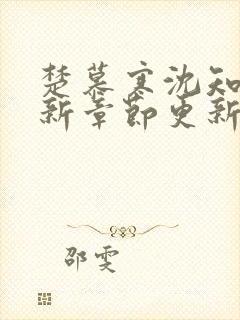 楚慕寒沈知
新章节更新
邵雯